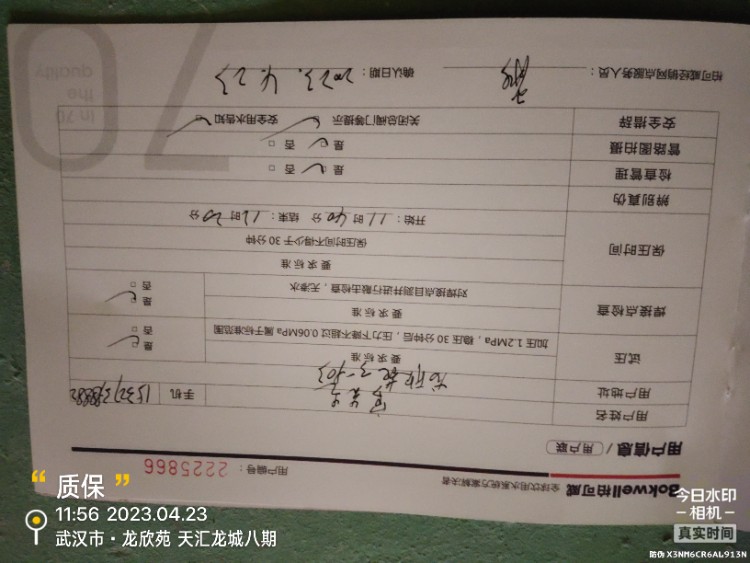 Bokwell柏可威 全球饮用水系统方案解决者
用户信息 / 用户联 用户编号：2225866
用户姓名 手机
用户地址
试压 要求标准 是
加压1.2MPa，稳压30分钟后，压力下降不超过0.06MPa属于标准范围 否
焊接点检查 要求标准 是
对焊接点目测并进行敲击检查，无渗水 否
保压时间 要求标准
保压时间不得少于30分钟
开始：11时40分 结束：12时20分
辨别真伪
检查管理 是 否
管路图拍摄 是 否
安全措辞 关闭总阀门等提示 安全用水告知
柏可威经销网点服务人员： 确认日期：2023.4.23
70
In 70
the
quality
“质保”
11:56 2023.04.23
武汉市·龙欣苑 天汇龙城八期
今日水印
相机
真实时间
防伪 X3NM6CR6AL913N